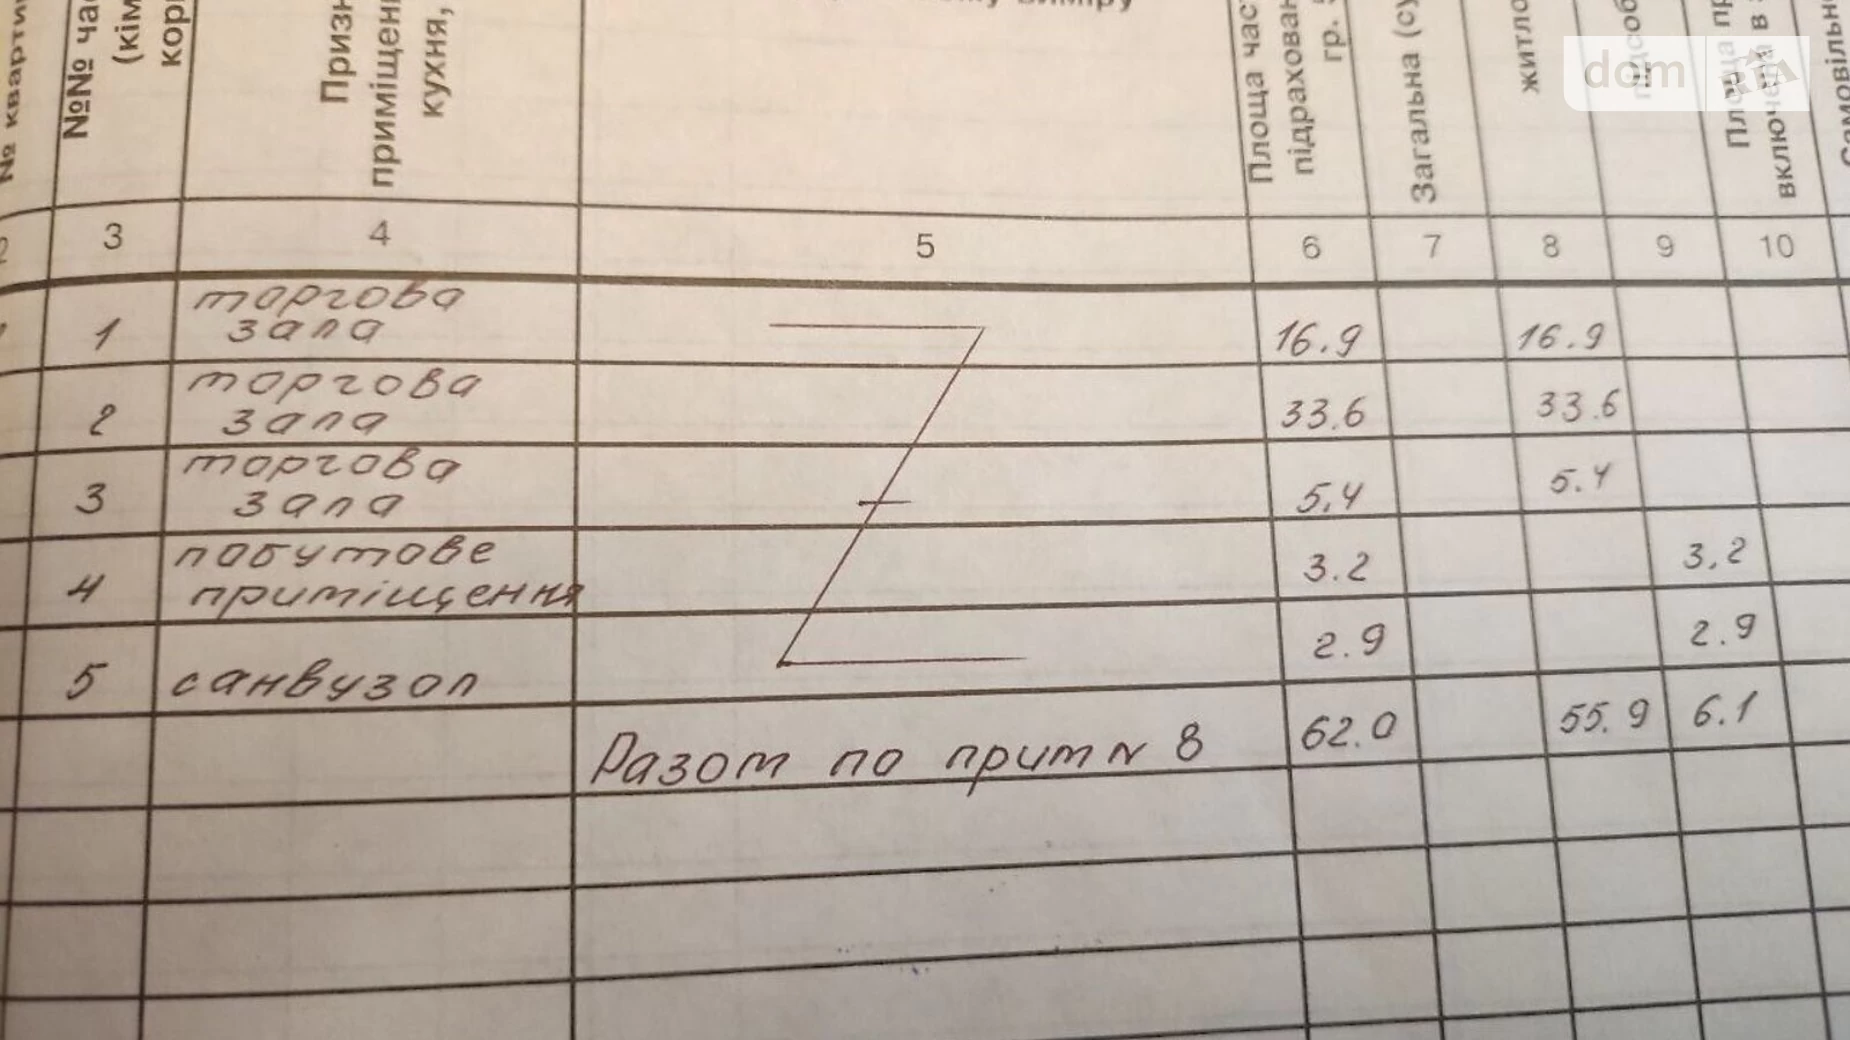 № квартири
№№ час
(кім
кори
Призн
приміщенн
кухня,
виміру
Площа част
підрахован
гр. 5
Загальна (су
житло
підсоб
Площа пр
включена в з
Самовільно
dom
2 3 4 5 6 7 8 9 10
1 торгова зала 16.9 16.9
2 торгова зала 33.6 33.6
3 торгова зала 5,4 5.4
4 побутове приміщення 3.2 3,2
5 санвузол 2.9 2.9
Разом по прим № 8 62.0 55.9 6.1